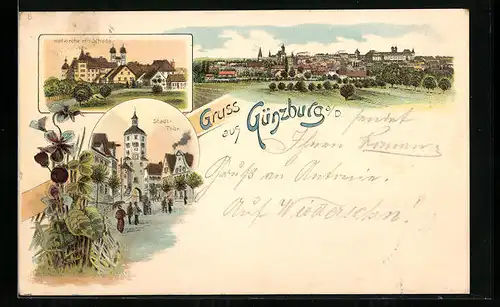 Hofkirche m. Schloss
Stadt-
Thür.
Gruss
aus Günzburg a/D
sendet
Ihnen
Gruss an Antonie.
Auf Wiedersehn!